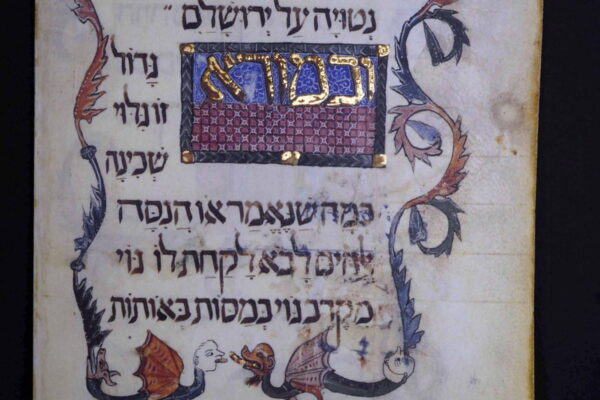 נטויה על ירושלם
ובמורא גדול
זו גלוי
שכינה
כמה שנאמר או הנסה
אלהים לבא לקחת לו גוי
מקרב גוי במסות באותות